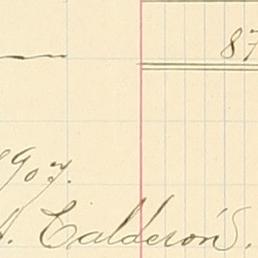 87
1907.
A. Calderon S.